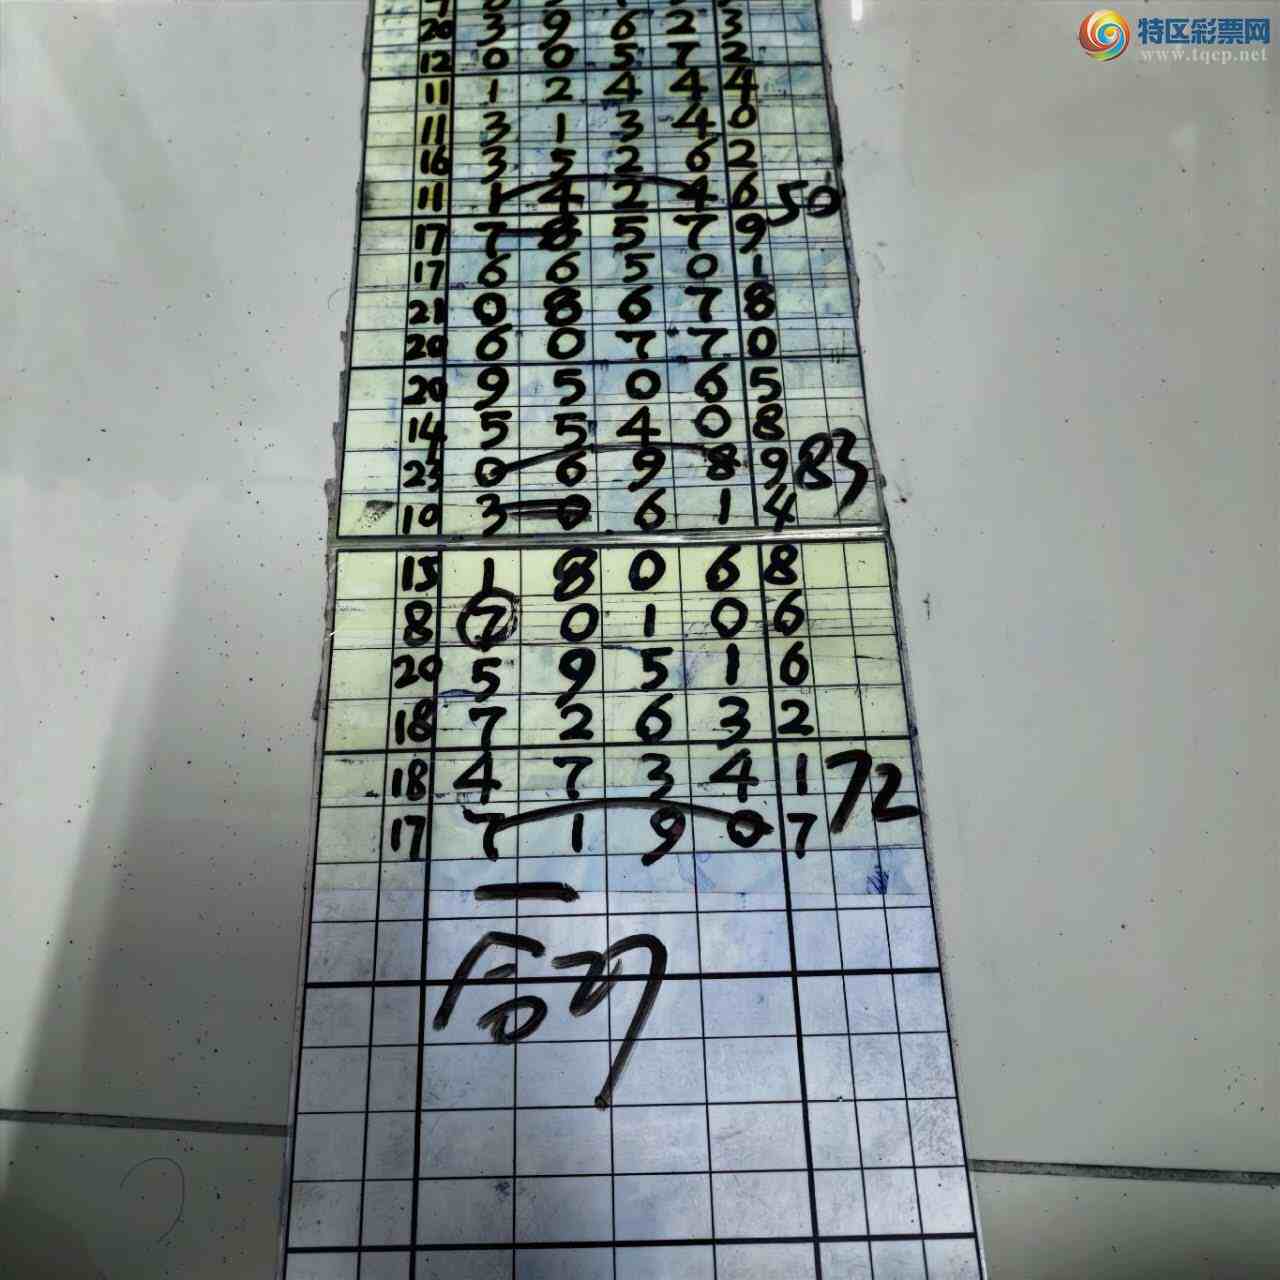 特区彩票网
www.tqcp.net
20 3 9 6 2 3
12 0 0 5 7 2
11 1 2 4 4 4
11 3 1 3 4 0
16 3 5 2 6 2
11 1 4 2 4 6 50
17 7 8 5 7 9
17 6 6 5 0 1
21 0 8 6 7 8
20 6 0 7 7 0
20 9 5 0 6 5
14 5 5 4 0 8
23 0 6 9 8 9 83
10 3 0 6 1 4
15 1 8 0 6 8
8 7 0 1 0 6
20 5 9 5 1 6
18 7 2 6 3 2
18 4 7 3 4 1 72
17 7 1 9 0 7
一